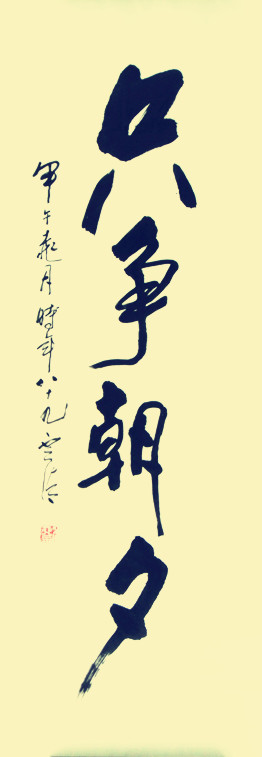 只争朝夕
甲午 月时年八十九云